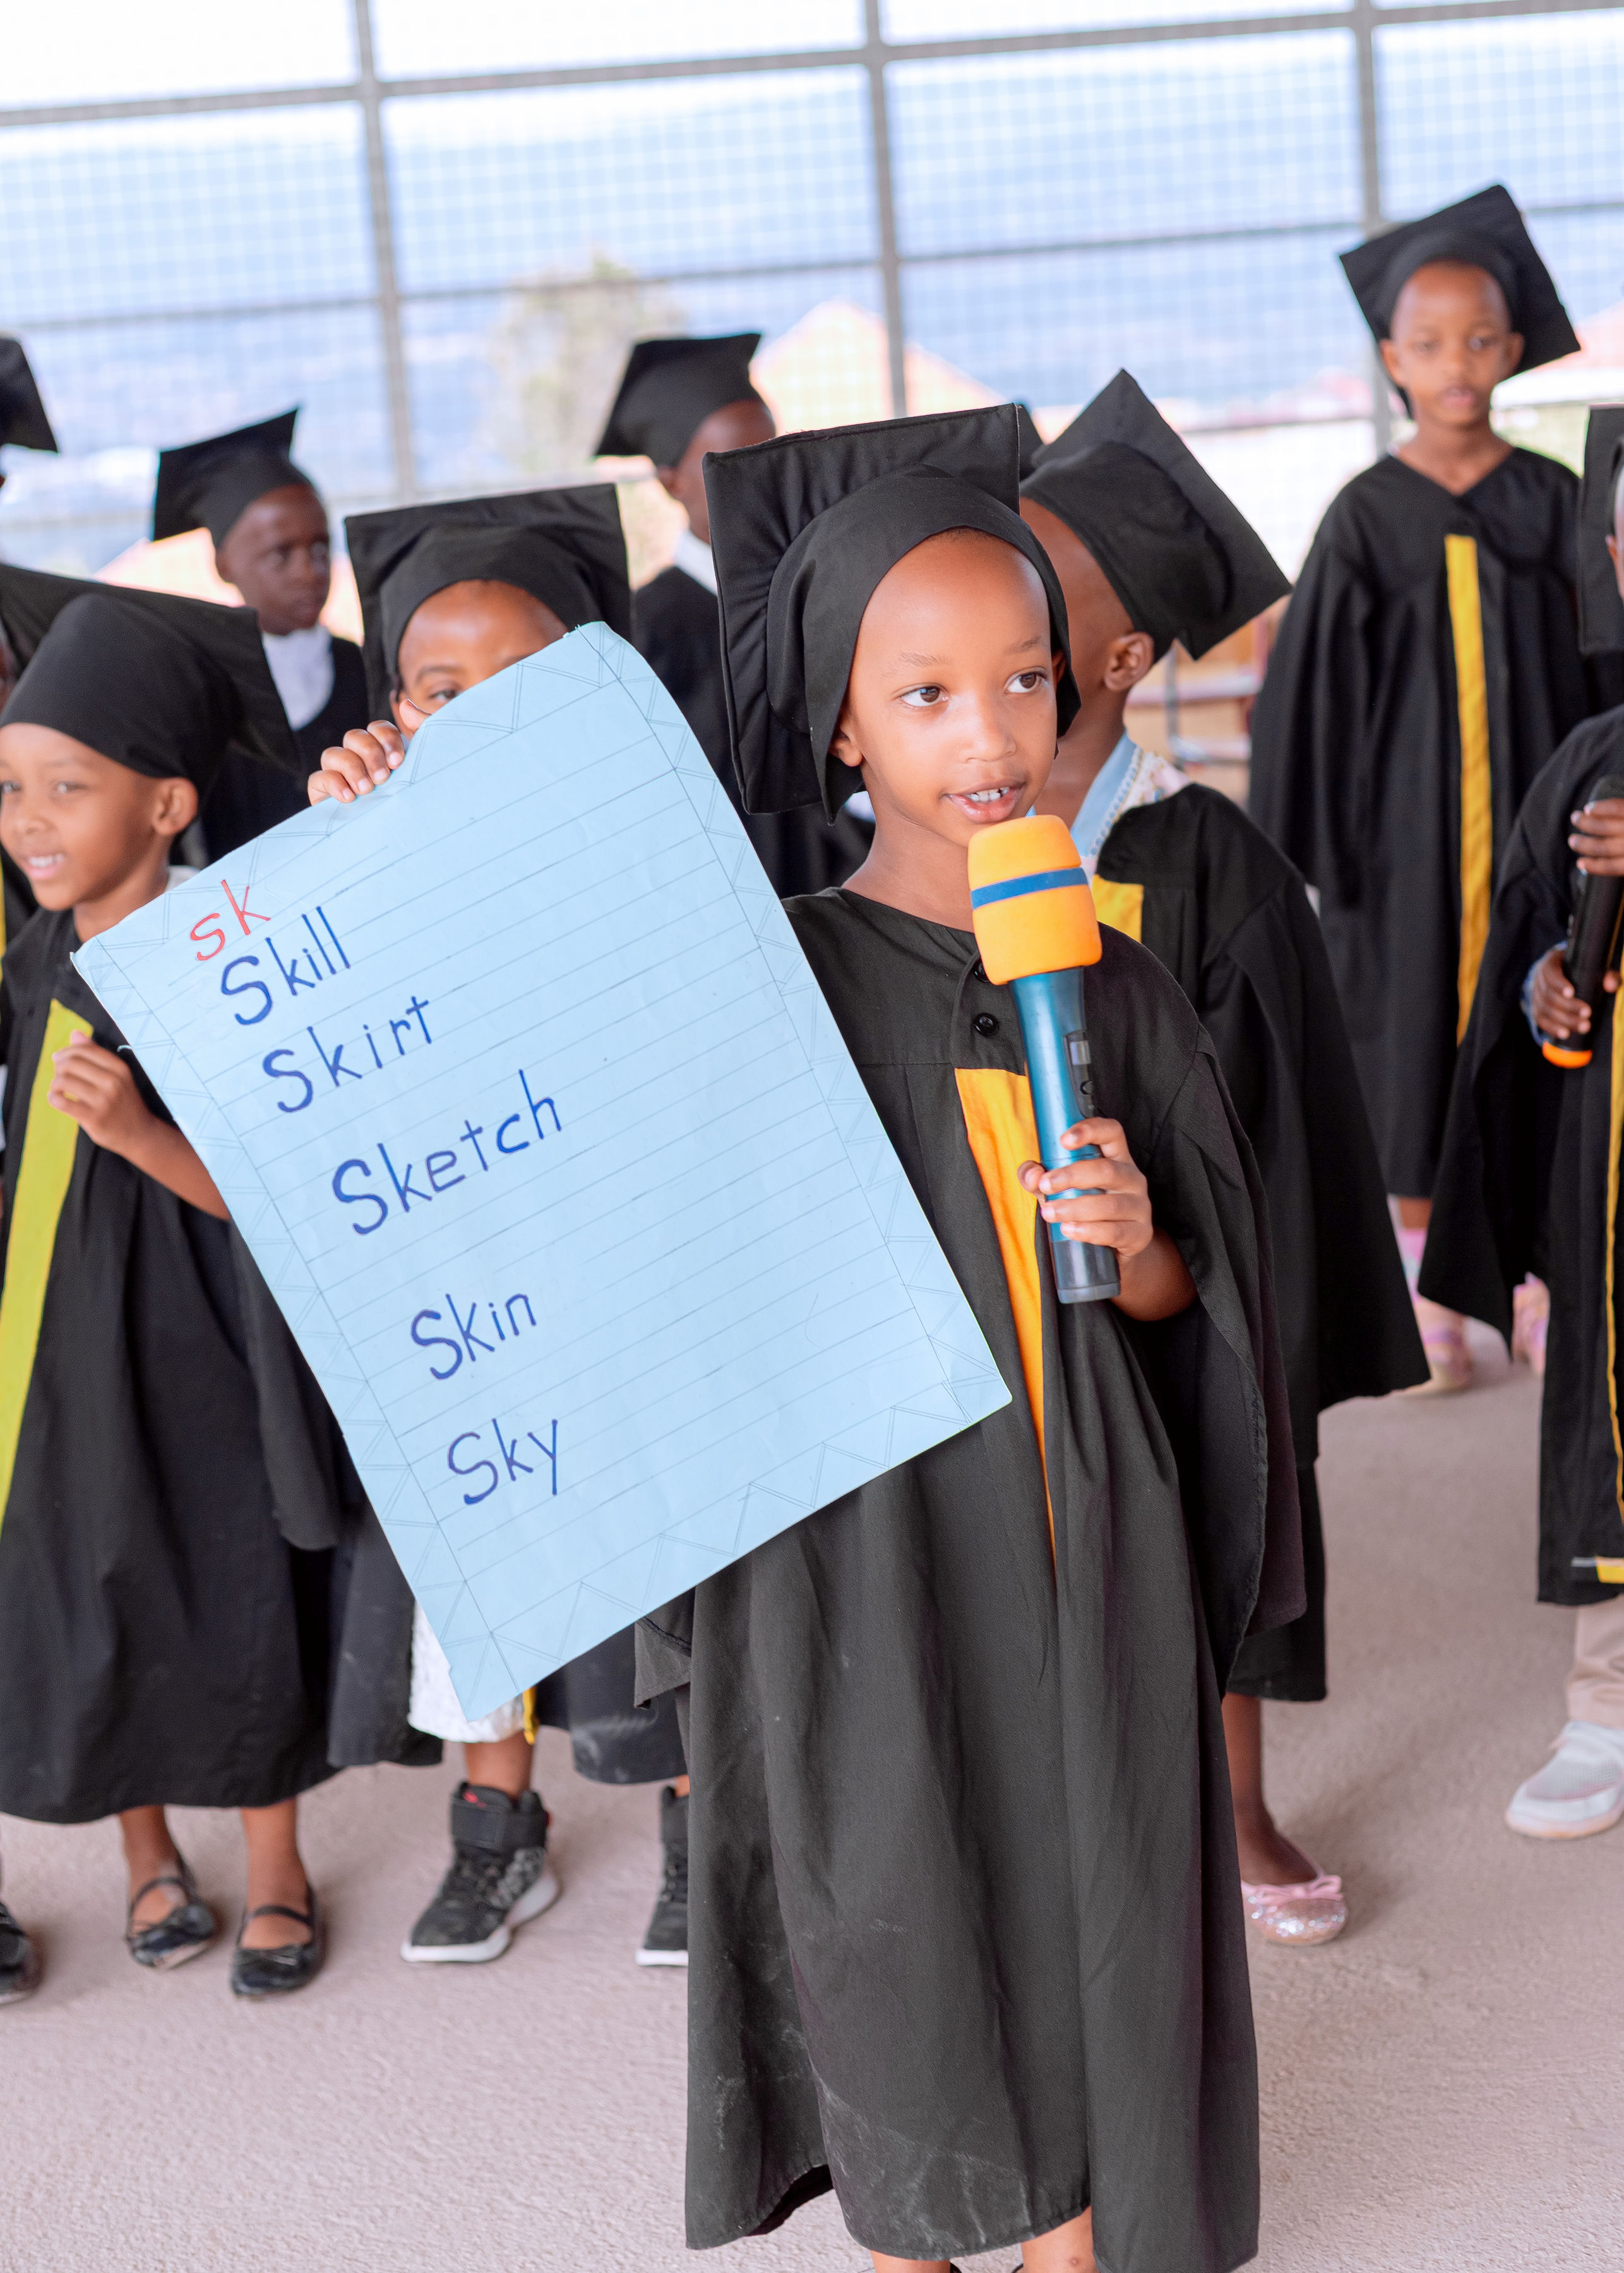 sk
Skill
Skirt
Sketch
Skin
Sky